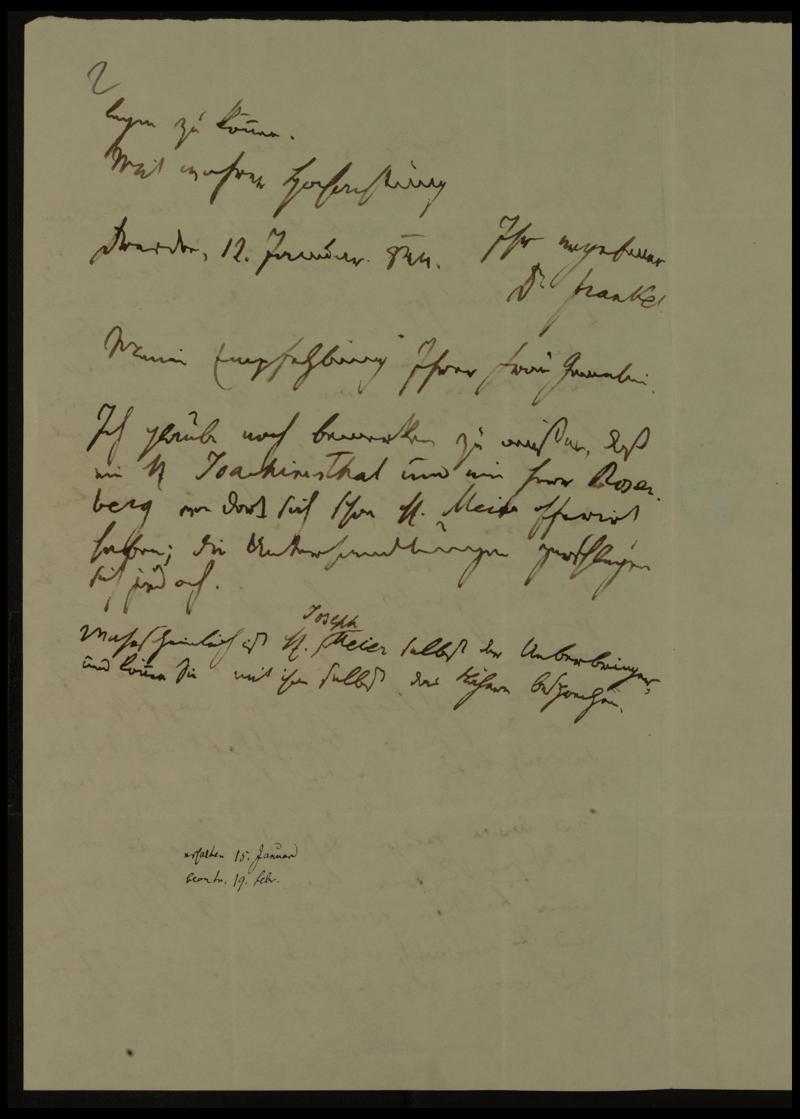 2
legen zu können.
Mit wahrer Hochachtung
Dresden, 12. Januar 844.
Ihr ergebener
Dr Frankel
Meine Empfehlung Ihrer Frau Gemalin.
Ich glaube noch bemerken zu müssen, daß
ein H Joachimsthal und ein Herr Rosen-
berg von dort sich schon H. Meier offerirt
haben; die Unterhandlungen zerschlugen
sich jedoch.
Joseph
Wahrscheinlich ist H. Meier selbst der Ueberbringer,
und können Sie mit ihm selbst das Nähere besprechen.
erhalten 15. Januar
beantw. 19. Febr.